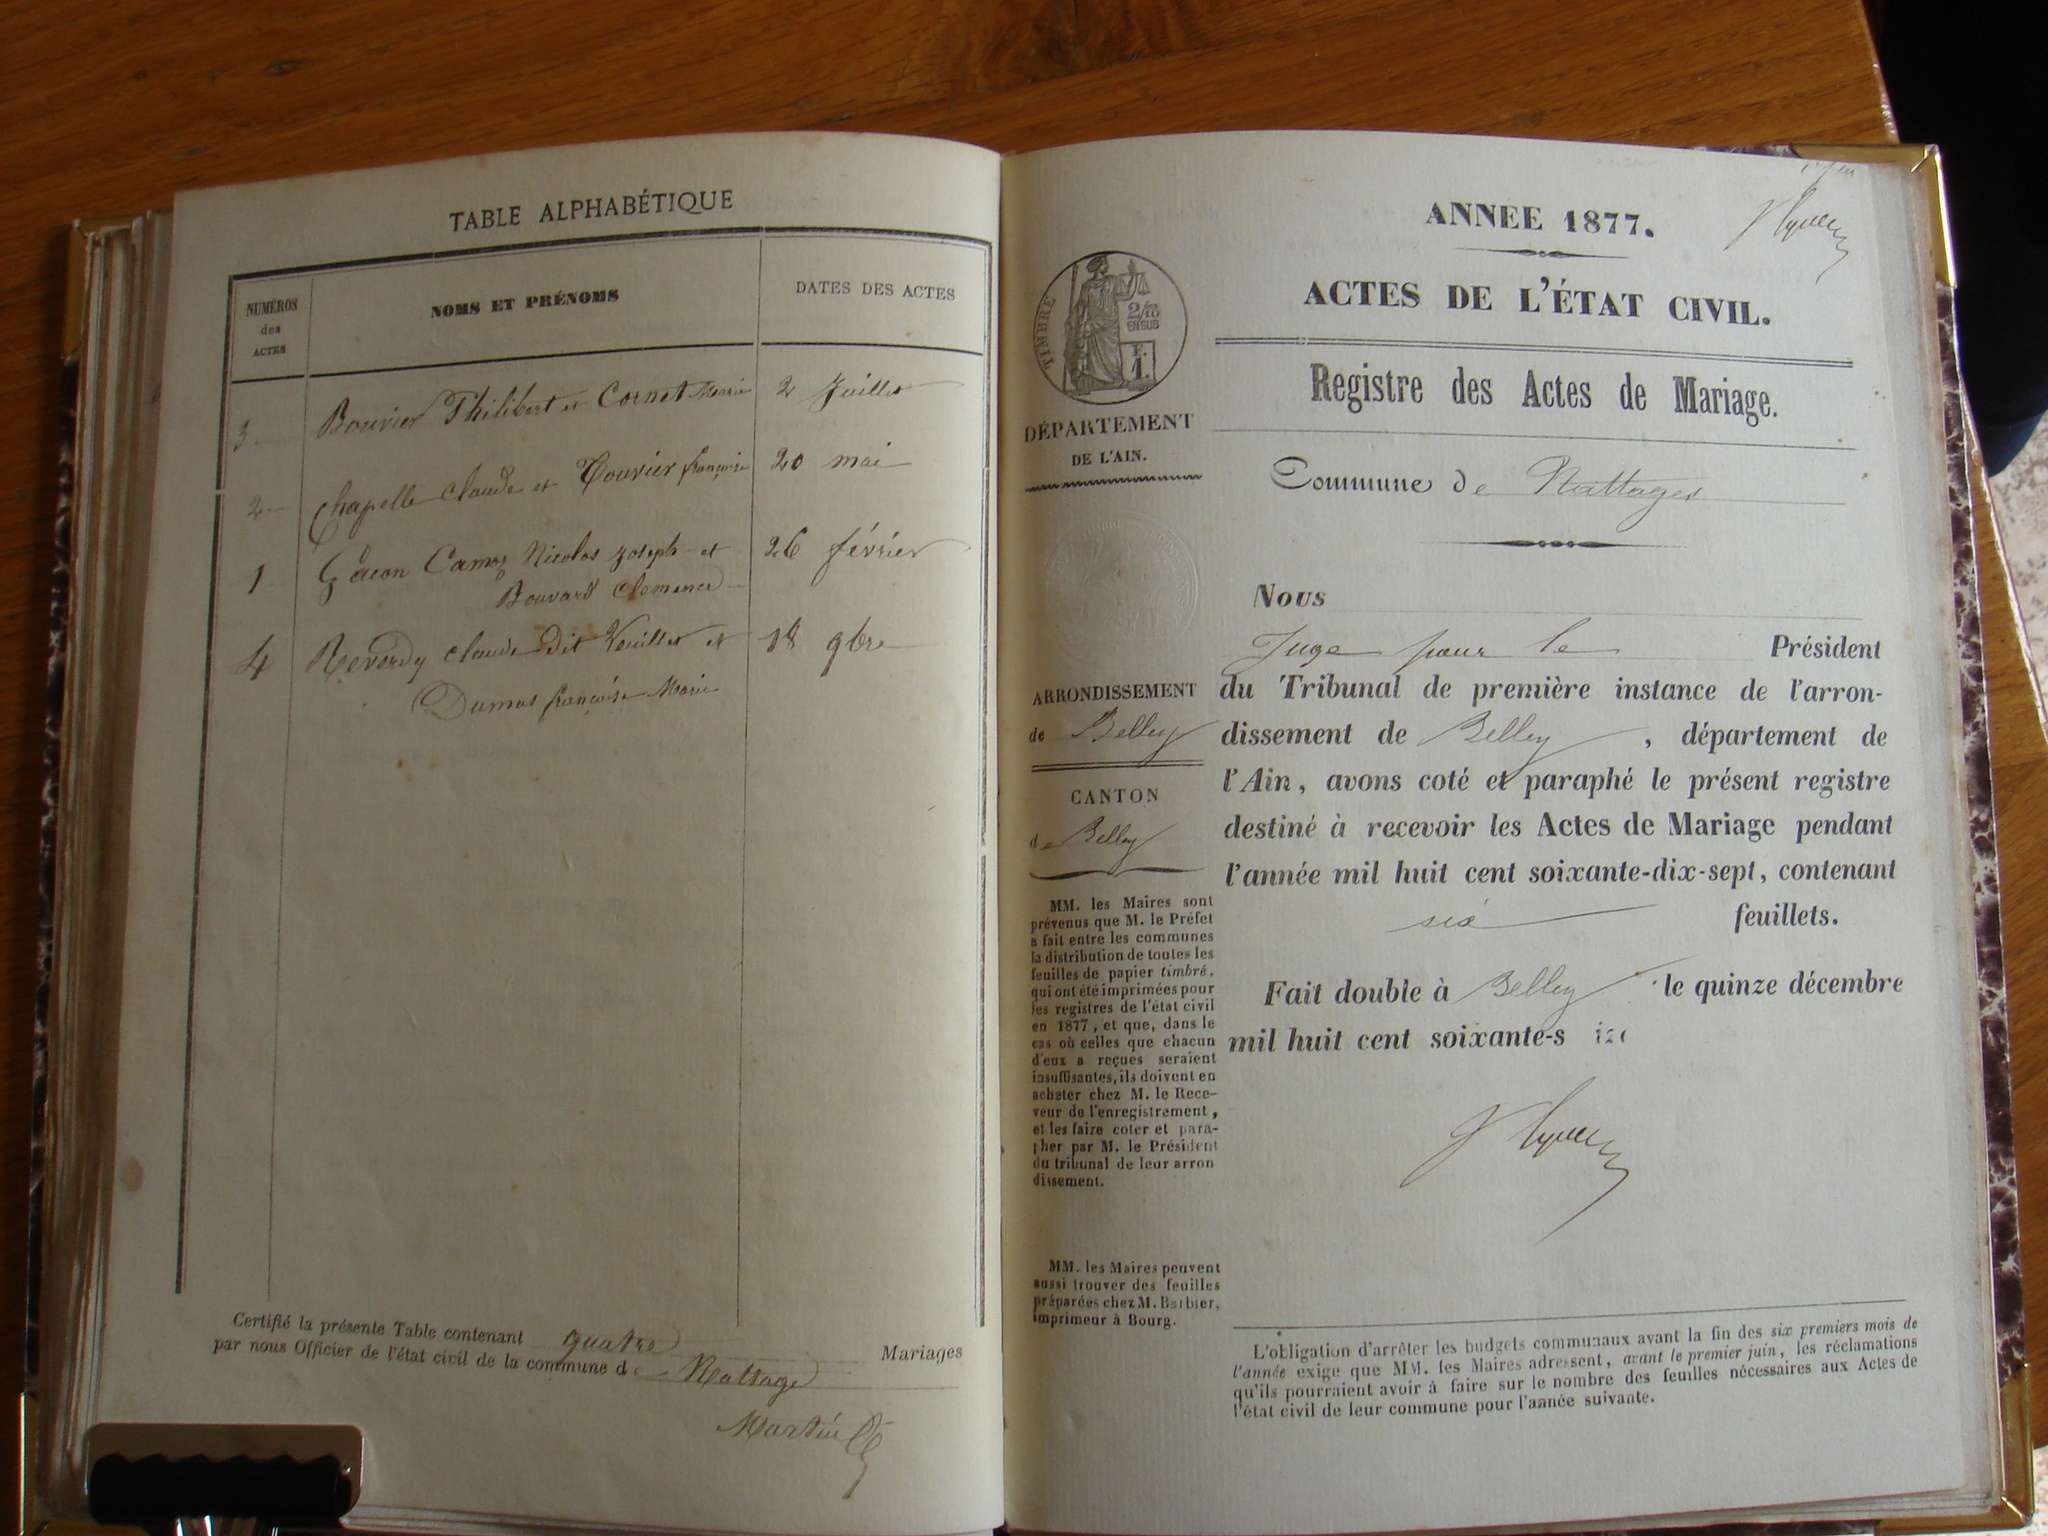 TABLE ALPHABÉTIQUE
NUMÉROS des ACTES
NOMS ET PRÉNOMS
DATES DES ACTES
3 Bouvier Philibert et Cornet Marie 2 Juillet
2 Chapelle Claude et Touvier françoise 20 mai
1 Gacon Camoz Nicolas Joseph et 26 février
Bouvard Clémence
4 Reverdy Claude dit Veuillet et 18 9bre
Dumas françoise Marie
Certifié la présente Table contenant quatre Mariages
par nous Officier de l'état civil de la commune de Nattage
Martin
ANNEE 1877.
ACTES DE L'ÉTAT CIVIL.
Registre des Actes de Mariage.
Commune de Nattages
TIMBRE
2/10
EN SUS
F.
1.
DÉPARTEMENT
DE L'AIN.
ARRONDISSEMENT
de Belley
CANTON
de Belley
MM. les Maires sont
prévenus que M. le Préfet
a fait entre les communes
la distribution de toutes les
feuilles de papier timbré,
qui ont été imprimées pour
les registres de l'état civil
en 1877, et que, dans le
cas où celles que chacun
d'eux a reçues seraient
insuffisantes, ils doivent en
acheter chez M. le Rece-
veur de l'enregistrement,
et les faire coter et para-
pher par M. le Président
du tribunal de leur arron
dissement.
MM. les Maires peuvent
aussi trouver des feuilles
préparées chez M. Barbier,
imprimeur à Bourg.
Nous
Juge pour le Président
du Tribunal de première instance de l'arron-
dissement de Belley, département de
l'Ain, avons coté et paraphé le présent registre
destiné à recevoir les Actes de Mariage pendant
l'année mil huit cent soixante-dix-sept, contenant
six feuillets.
Fait double à Belley le quinze décembre
mil huit cent soixante-s
L'obligation d'arrêter les budgets communaux avant la fin des six premiers mois de
l'année exige que MM. les Maires adressent, avant le premier juin, les réclamations
qu'ils pourraient avoir à faire sur le nombre des feuilles nécessaires aux Actes de
l'état civil de leur commune pour l'année suivante.